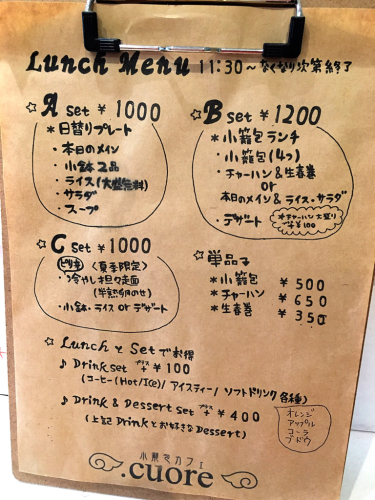 Lunch Menu 11:30～なくなり次第終了
☆A set ¥1000
＊日替りプレート
・本日のメイン
・小鉢2品
・ライス(大盛無料)
・サラダ
・スープ
☆B set ¥1200
＊小籠包ランチ
・小籠包(4つ)
・チャーハン&生春巻
or
本日のメイン&ライス・サラダ
・デザート
＊チャーハン大盛り
プラス¥100
☆C set ¥1000
ピリ辛〈夏季限定〉
・冷やし担々麺
(半熟卵のせ)
・小鉢・ライス or デザート
☆単品
＊小籠包 ¥500
＊チャーハン ¥650
＊生春巻 ¥350
☆LunchとSetでお得
♪Drink set プラス+ ¥100
(コーヒー(Hot/Ice)/アイスティー/ソフトドリンク各種)
♪Drink & Dessert set プラス+ ¥400
(上記Drinkとお好きなDessert)
オレンジ
アップル
コーラ
ブドウ
小籠包カフェ
.cuore